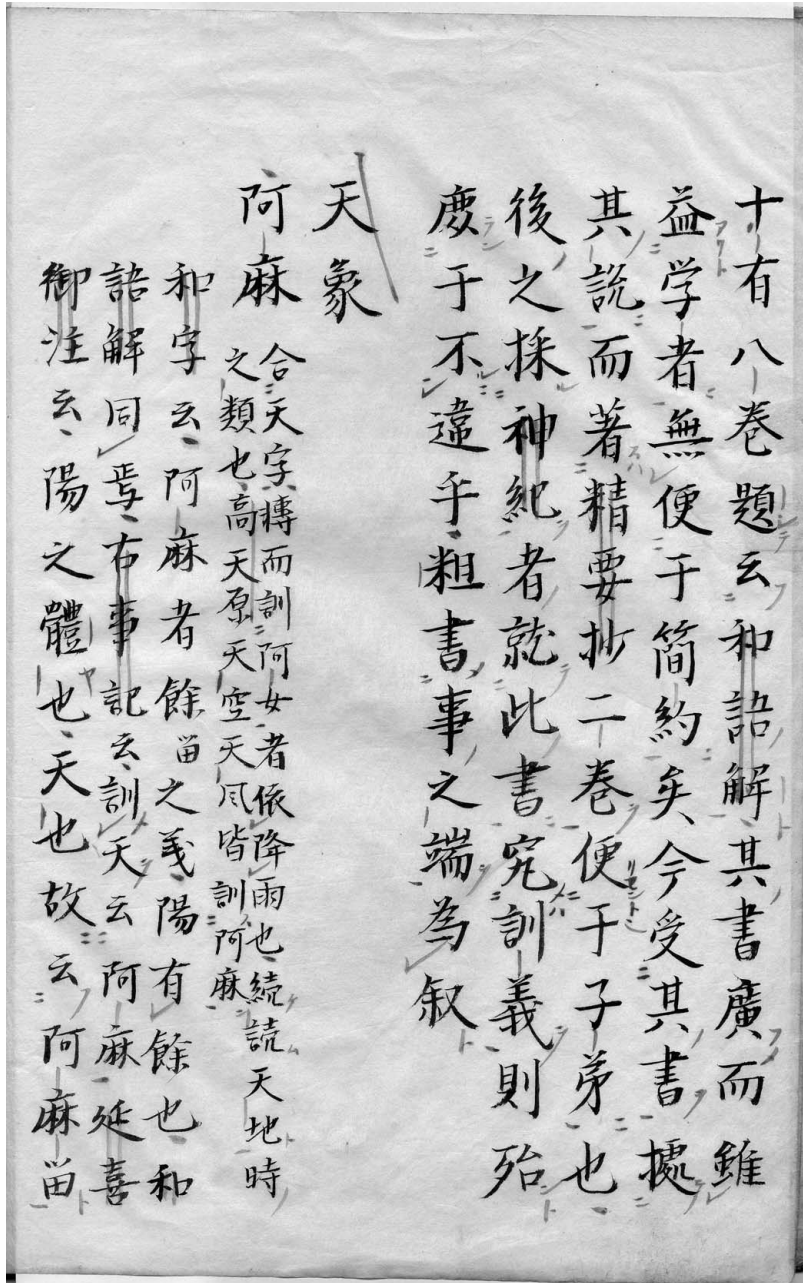 十有八巻題云和語解其書廣而雖
益学者無便于簡約矣今受其書據
其説而著精要抄二巻便于子弟也
後之採神紀者就此書究訓義則殆
庶于不違乎粗書事之端為叙
天象
阿麻
合天字摶而訓阿女者依降雨也続読天地時
之類也高天原天空天風皆訓阿麻
和字云阿麻者餘畄之義陽有餘也和
語解同焉古事記云訓天云阿麻延喜
御注云陽之體也天也故云阿麻畄